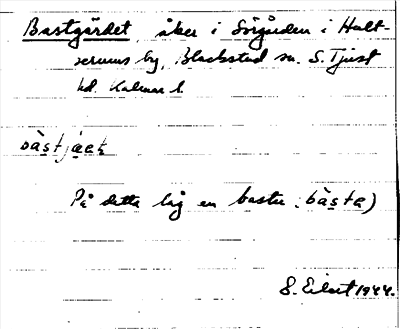 Bastgärdet, åker i Sörgården i Hult-
serums by, Blackstad sn. S. Tjust
hd. Kalmar l.
bàstjäɐ̯
På detta låg en bastu (bàsta)
S. Eilert 1944.